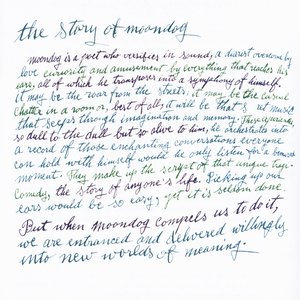 the story of moondog
moondog is a poet who versifies in sound, a diarist overcome by
love curiosity and amusement by everything that reaches his
ears, all of which he transposes into a symphony of himself.
it may be the roar from the streets, it may be the casual
chatter in a room or, best of all, it will be that secret music
that seeps through imagination and memory. These squawks
so dull to the dull but so alive to him, he orchestrates into
a record of those enchanting conversations everyone
can hold with himself would he only listen for a bemused
moment. They make up the script of that unique tragi-
comedy, the story of anyone's life. Picking up our
ears would be so easy; yet it is seldom done.
But when moondog compels us to do it,
we are entranced and delivered willingly
into new worlds of meaning.